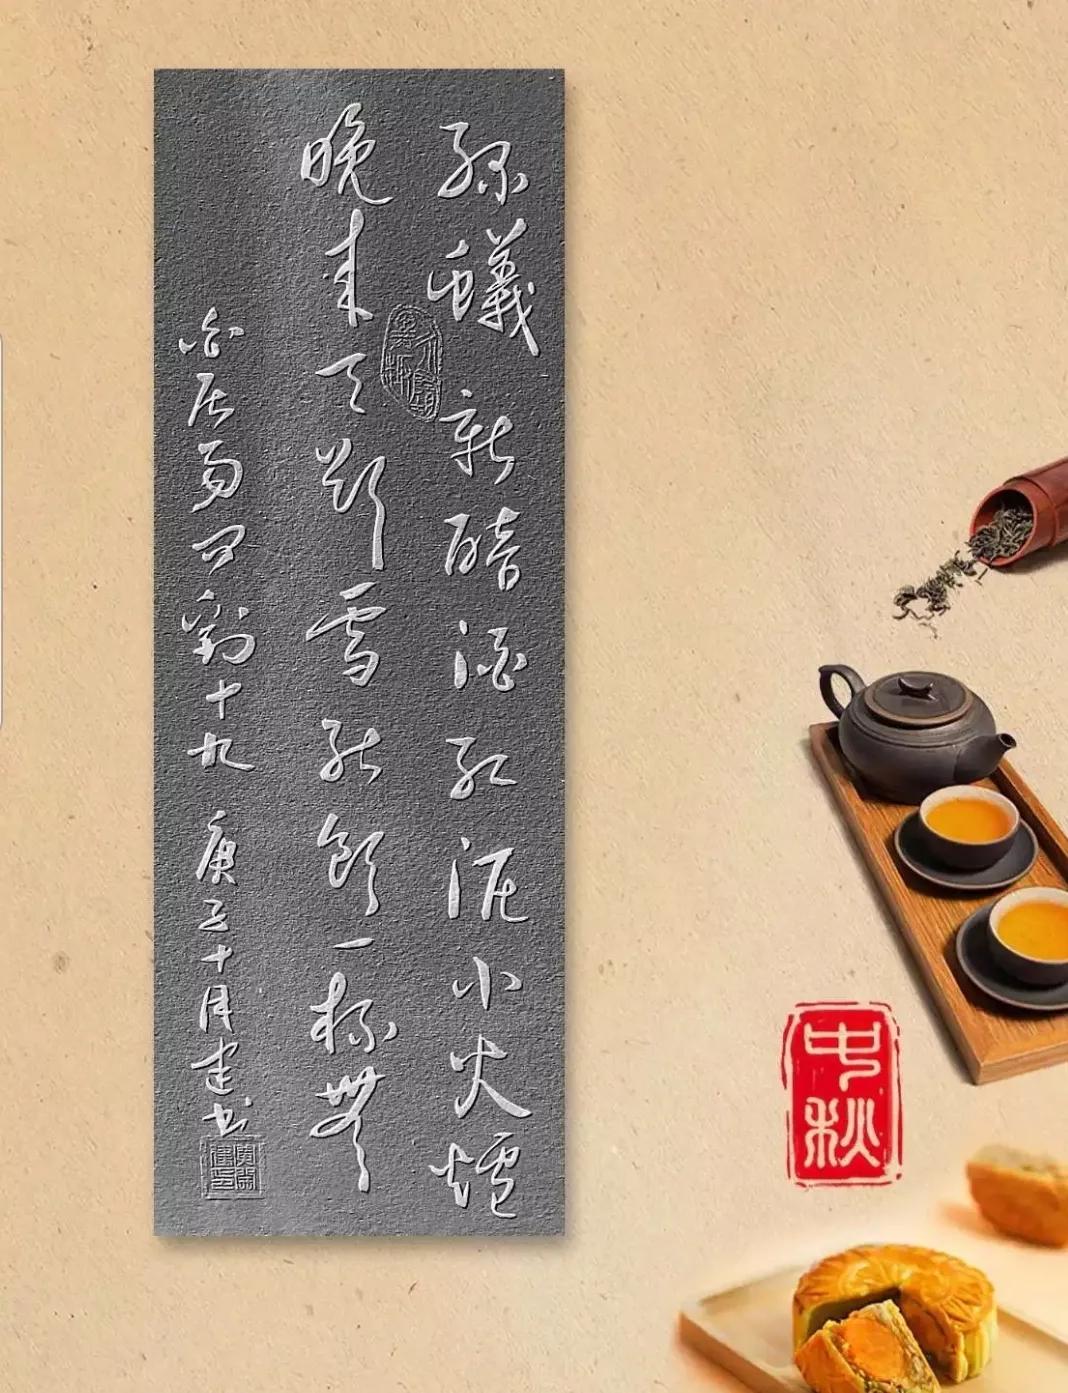 綠蟻新醅酒紅泥小火爐
晚來天欲雪能飲一杯無
白居易問劉十九 庚子十月建书
中秋